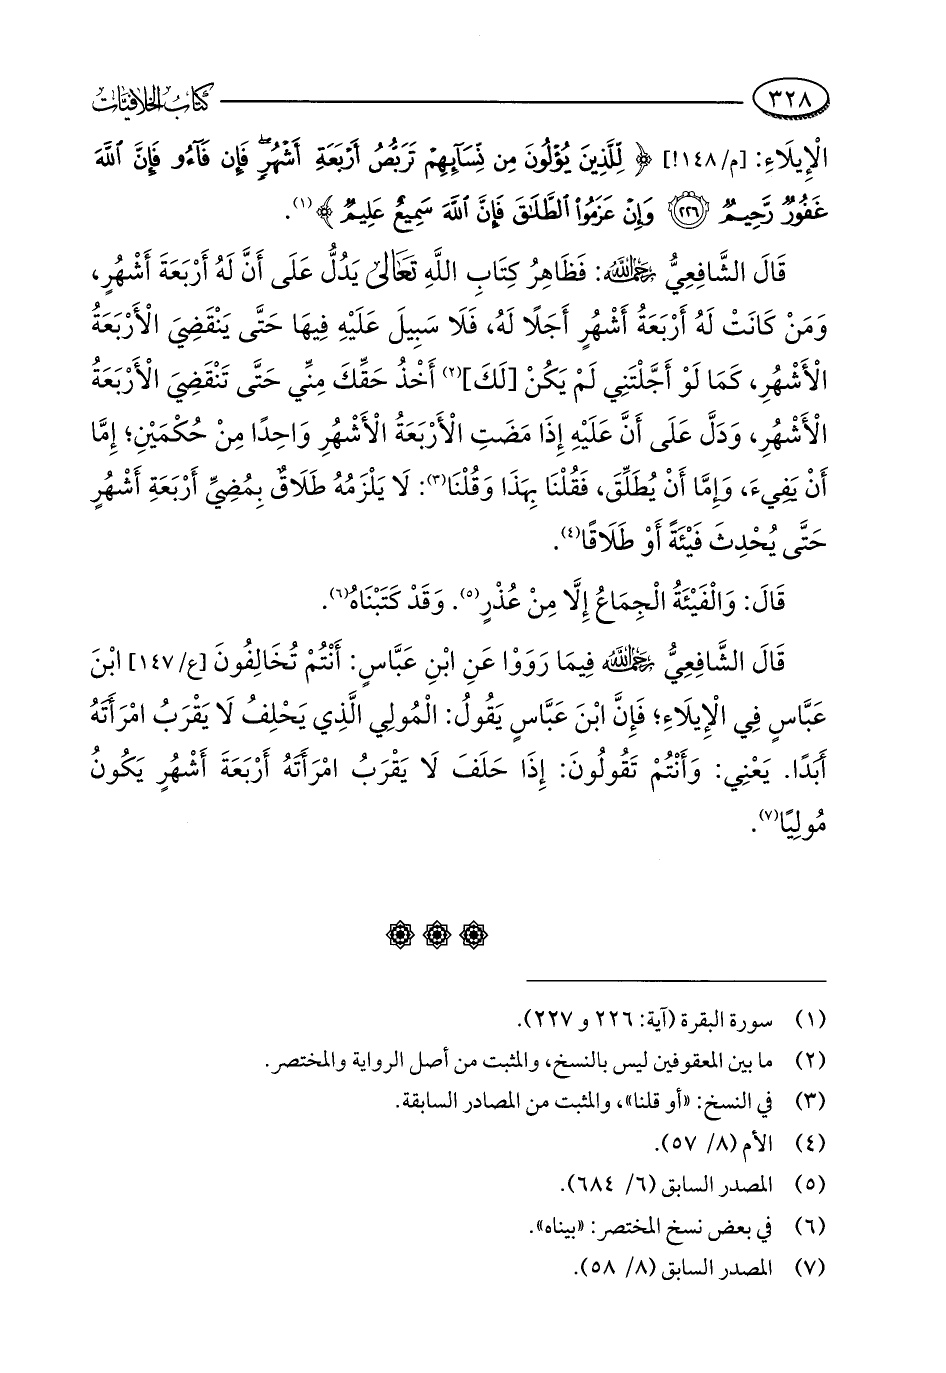 ٣٢٨ كتاب الخلافيات
الْإِيلَاءِ: [م/١٤٨!] ﴿لِّلَّذِينَ يُؤْلُونَ مِن نِّسَآئِهِمْ تَرَبُّصُ أَرْبَعَةِ أَشْهُرٍۖ فَإِن فَآءُو فَإِنَّ ٱللَّهَ
غَفُورٌ رَّحِيمٌ ٢٢٦ وَإِنْ عَزَمُوا۟ ٱلطَّلَٰقَ فَإِنَّ ٱللَّهَ سَمِيعٌ عَلِيمٌ﴾(١).
قَالَ الشَّافِعِيُّ رَحِمَهُ اللَّهُ: فَظَاهِرُ كِتَابِ اللَّهِ تَعَالَى يَدُلُّ عَلَى أَنَّ لَهُ أَرْبَعَةَ أَشْهُرٍ،
وَمَنْ كَانَتْ لَهُ أَرْبَعَةُ أَشْهُرٍ أَجَلًا لَهُ، فَلَا سَبِيلَ عَلَيْهِ فِيهَا حَتَّى يَنْقَضِيَ الْأَرْبَعَةُ
الْأَشْهُرِ، كَمَا لَوْ أَجَّلْتَنِي لَمْ يَكُنْ [لَكَ](٢) أَخْذُ حَقِّكَ مِنِّي حَتَّى تَنْقَضِيَ الْأَرْبَعَةُ
الْأَشْهُرِ، وَدَلَّ عَلَى أَنَّ عَلَيْهِ إِذَا مَضَتِ الْأَرْبَعَةُ الْأَشْهُرِ وَاحِدًا مِنْ حُكْمَيْنِ؛ إِمَّا
أَنْ يَفِيءَ، وَإِمَّا أَنْ يُطَلِّقَ، فَقُلْنَا بِهَذَا وَقُلْنَا(٣): لَا يَلْزَمُهُ طَلَاقٌ بِمُضِيِّ أَرْبَعَةِ أَشْهُرٍ
حَتَّى يُحْدِثَ فَيْئَةً أَوْ طَلَاقًا(٤).
قَالَ: وَالْفَيْئَةُ الْجِمَاعُ إِلَّا مِنْ عُذْرٍ(٥). وَقَدْ كَتَبْنَاهُ(٦).
قَالَ الشَّافِعِيُّ رَحِمَهُ اللَّهُ فِيمَا رَوَوْا عَنِ ابْنِ عَبَّاسٍ: أَنْتُمْ تُخَالِفُونَ [ع/١٤٧] ابْنَ
عَبَّاسٍ فِي الْإِيلَاءِ؛ فَإِنَّ ابْنَ عَبَّاسٍ يَقُولُ: الْمُولِي الَّذِي يَحْلِفُ لَا يَقْرَبُ امْرَأَتَهُ
أَبَدًا. يَعْنِي: وَأَنْتُمْ تَقُولُونَ: إِذَا حَلَفَ لَا يَقْرَبُ امْرَأَتَهُ أَرْبَعَةَ أَشْهُرٍ يَكُونُ
مُولِيًا(٧).
(١) سورة البقرة (آية: ٢٢٦ و ٢٢٧).
(٢) ما بين المعقوفين ليس بالنسخ، والمثبت من أصل الرواية والمختصر.
(٣) في النسخ: «أو قلنا»، والمثبت من المصادر السابقة.
(٤) الأم (٨/ ٥٧).
(٥) المصدر السابق (٦/ ٦٨٤).
(٦) في بعض نسخ المختصر: «بيناه».
(٧) المصدر السابق (٨/ ٥٨).